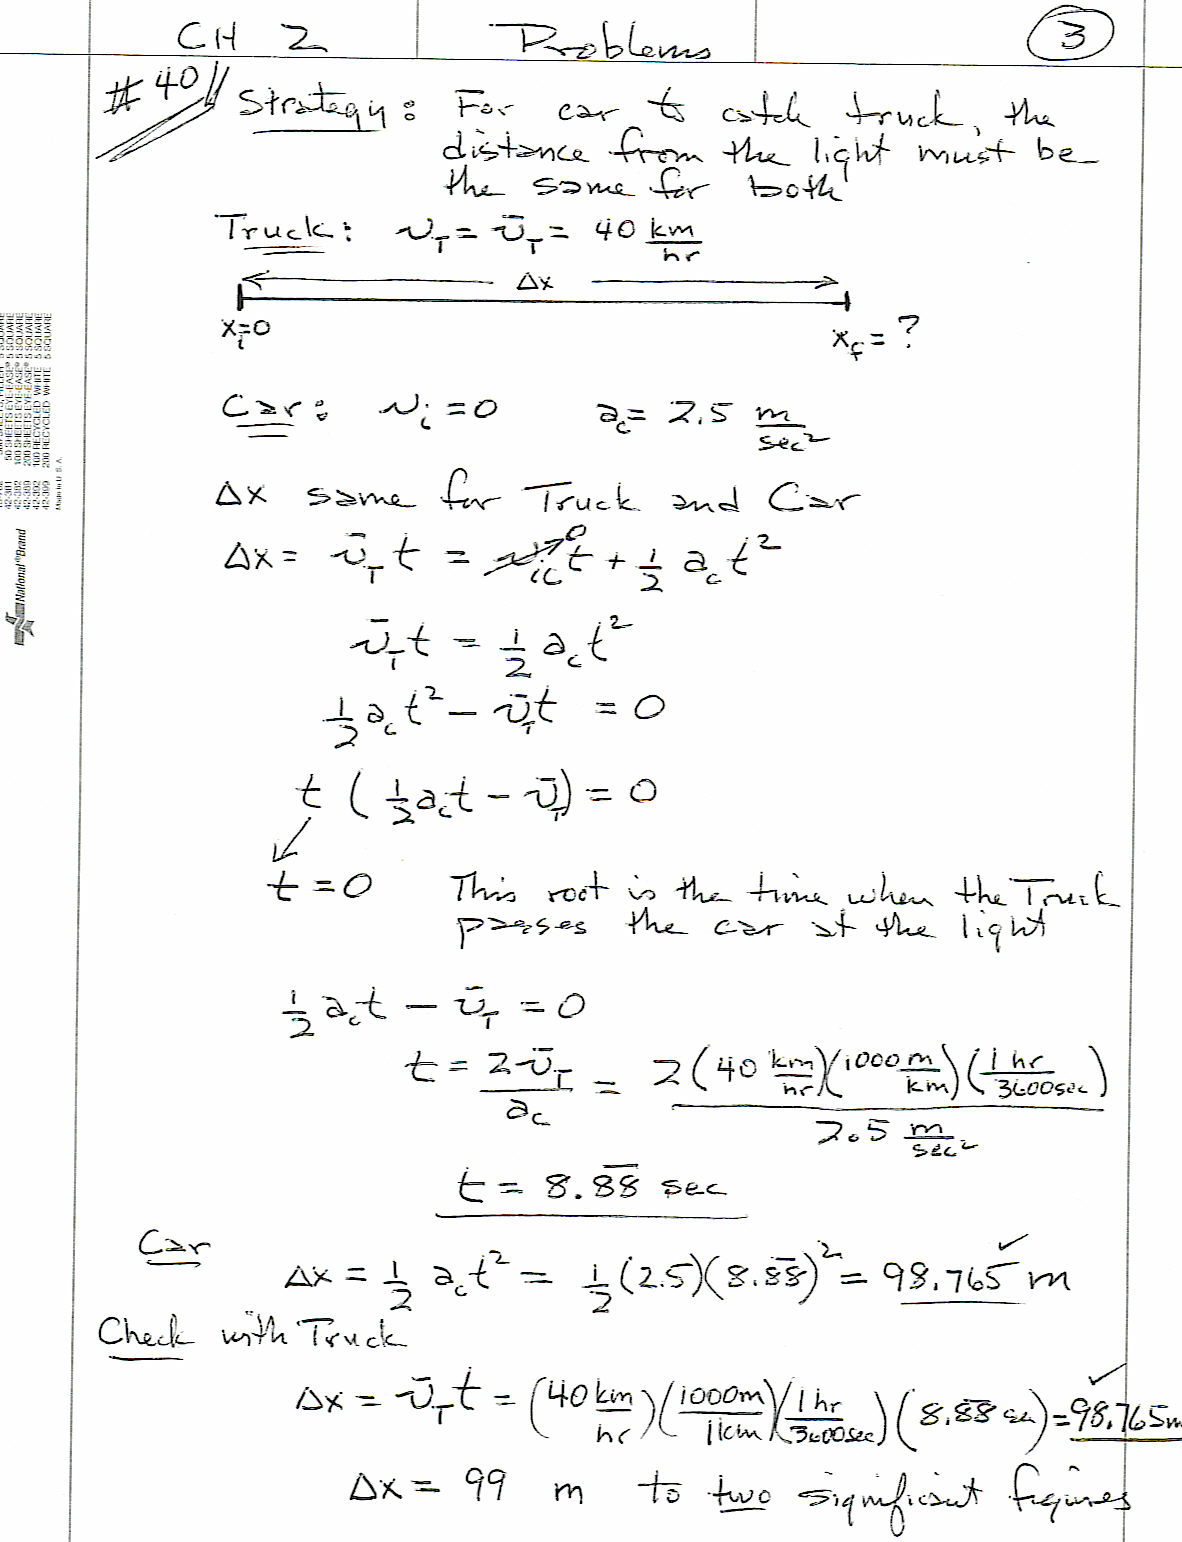 CH 2 Problems 3
#40 Strategy: For car to catch truck, the
distance from the light must be
the same for both
Truck: v_T = v̄_T = 40 km/hr
Δx
x_i=0 x_f = ?
Car: v_i = 0 a_c = 2.5 m/sec²
Δx same for Truck and Car
Δx = v̄_T t = v_ic t + 1/2 a_c t² 0
v̄_T t = 1/2 a_c t²
1/2 a_c t² - v̄_T t = 0
t (1/2 a_c t - v̄_T) = 0
t = 0 This root is the time when the Truck
passes the car at the light
1/2 a_c t - v̄_T = 0
t = 2 v̄_T / a_c = 2(40 km/hr)(1000 m/km)(1 hr/3600 sec) / 2.5 m/sec²
t = 8.8̅8̅ sec
Car
Δx = 1/2 a_c t² = 1/2 (2.5)(8.8̅8̅)² = 98.765 m ✓
Check with Truck
Δx = v̄_T t = (40 km/hr)(1000m/1km)(1 hr/3600 sec)(8.8̅8̅ sec) = 98.765 m ✓
Δx = 99 m to two significant figures
42-381 50 SHEETS EYE-EASE® 5 SQUARE
42-382 100 SHEETS EYE-EASE® 5 SQUARE
42-389 200 SHEETS EYE-EASE® 5 SQUARE
42-392 100 RECYCLED WHITE 5 SQUARE
42-399 200 RECYCLED WHITE 5 SQUARE
Made in U.S.A.
National®Brand